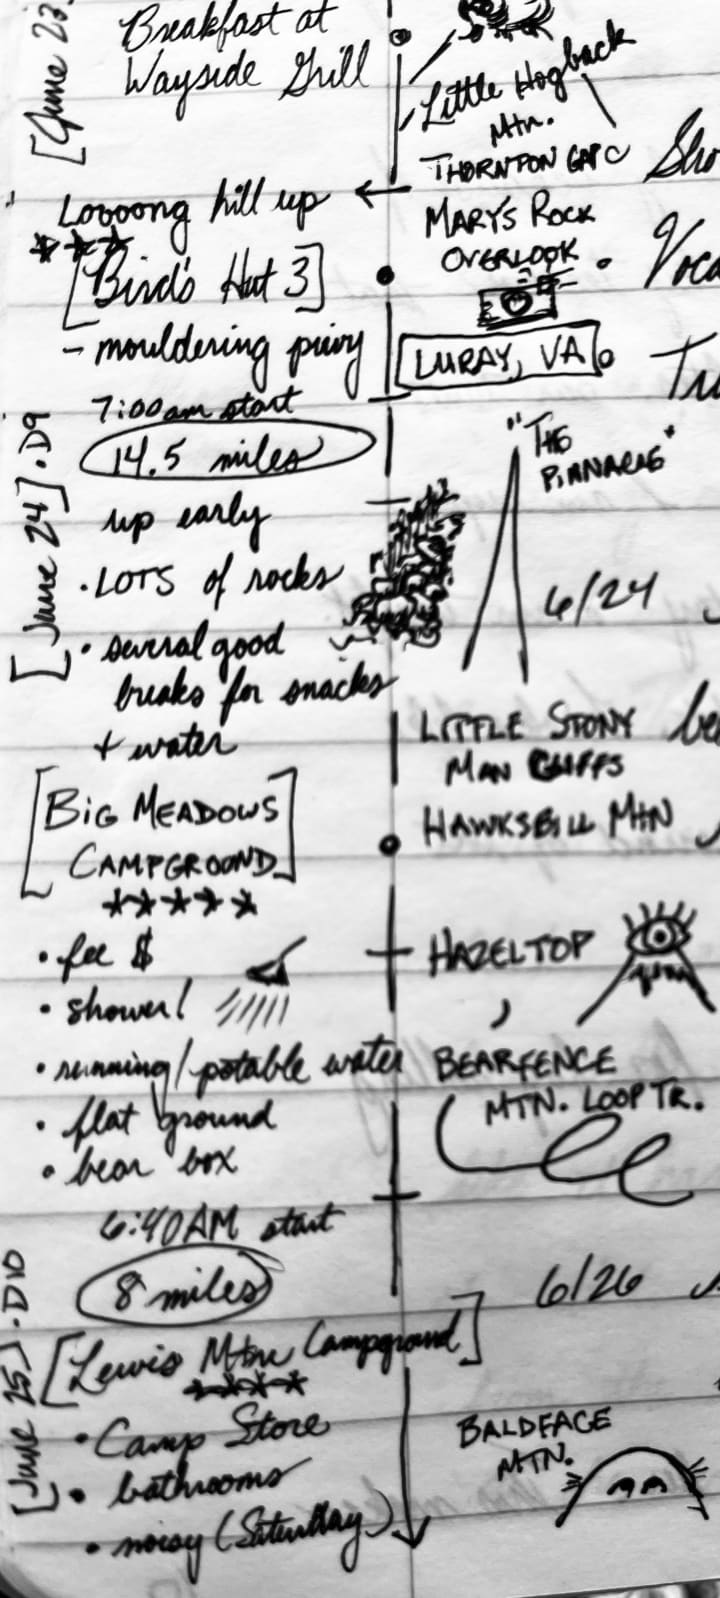 [June 23.
Breakfast at
Wayside Grill
Loooong hill up
***
[Bird's Hut 3]
- mouldering privy
7:00am start
[June 24] . D9
14.5 miles
up early
• LOTS of rocks
• several good
breaks for snacks
+ water
[BIG MEADOWS
CAMPGROUND]
*****
• fee $
• shower!
• running/potable water
• flat ground
• bear box
6:40AM start
[June 25] . D10
8 miles
[Lewis Mtn Campground]
****
• Camp Store
• bathrooms
• noisy (Saturday)
Little Hogback
Mtn.
THORNTON GAP
MARY'S ROCK
OVERLOOK
LURAY, VA
"THE
PINNACLE"
6/24
LITTLE STONY
MAN CLIFFS
HAWKSBILL MTN
HAZELTOP
BEARFENCE
MTN. LOOP TR.
6/26
BALDFACE
MTN.